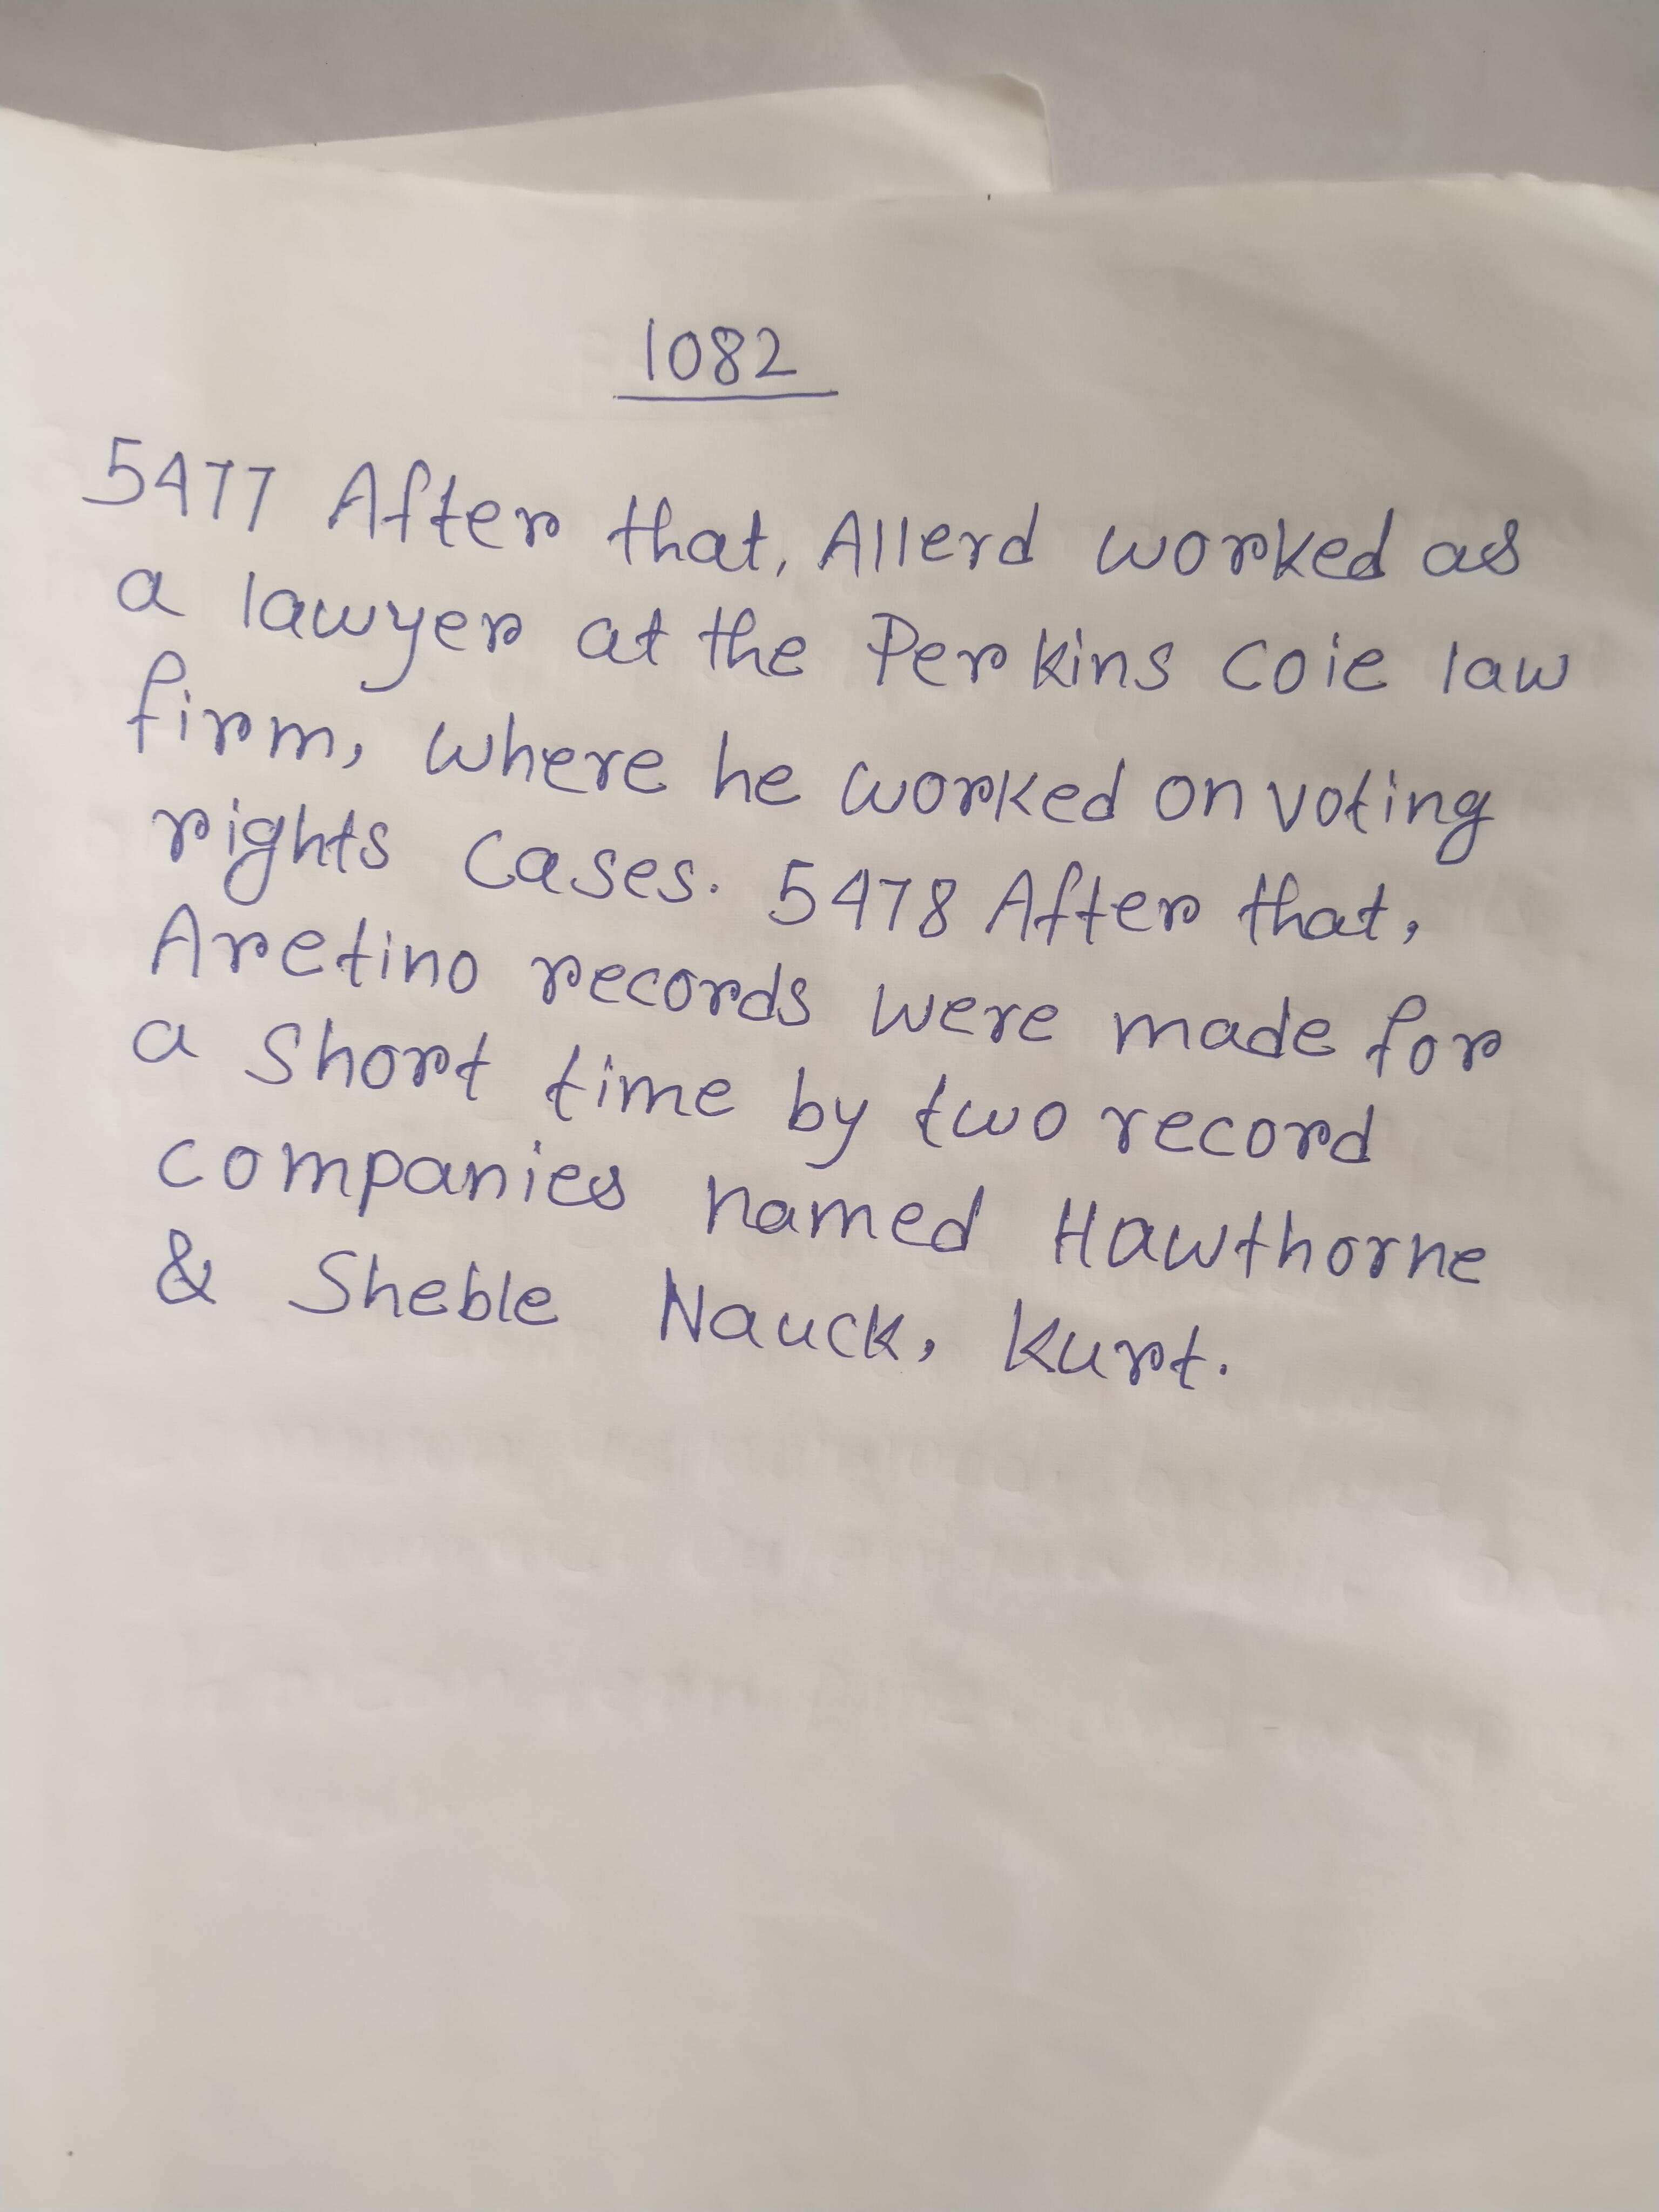 1082
5477 After that, Allerd worked as
a lawyer at the Perkins Coie law
firm, where he worked on voting
rights cases. 5478 After that,
Aretino records were made for
a short time by two record
companies named Hawthorne
& Sheble Nauck, Kurt.